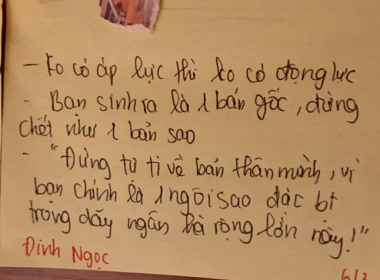 - Ko có áp lực thì ko có động lực
- Bạn sinh ra là 1 bản gốc, đừng
chết như 1 bản sao
- "Đừng tự ti về bản thân mình, vì
bạn chính là 1 ngôi sao đặc bt
trong dãy ngân hà rộng lớn này!"
Đinh Ngọc
6/2